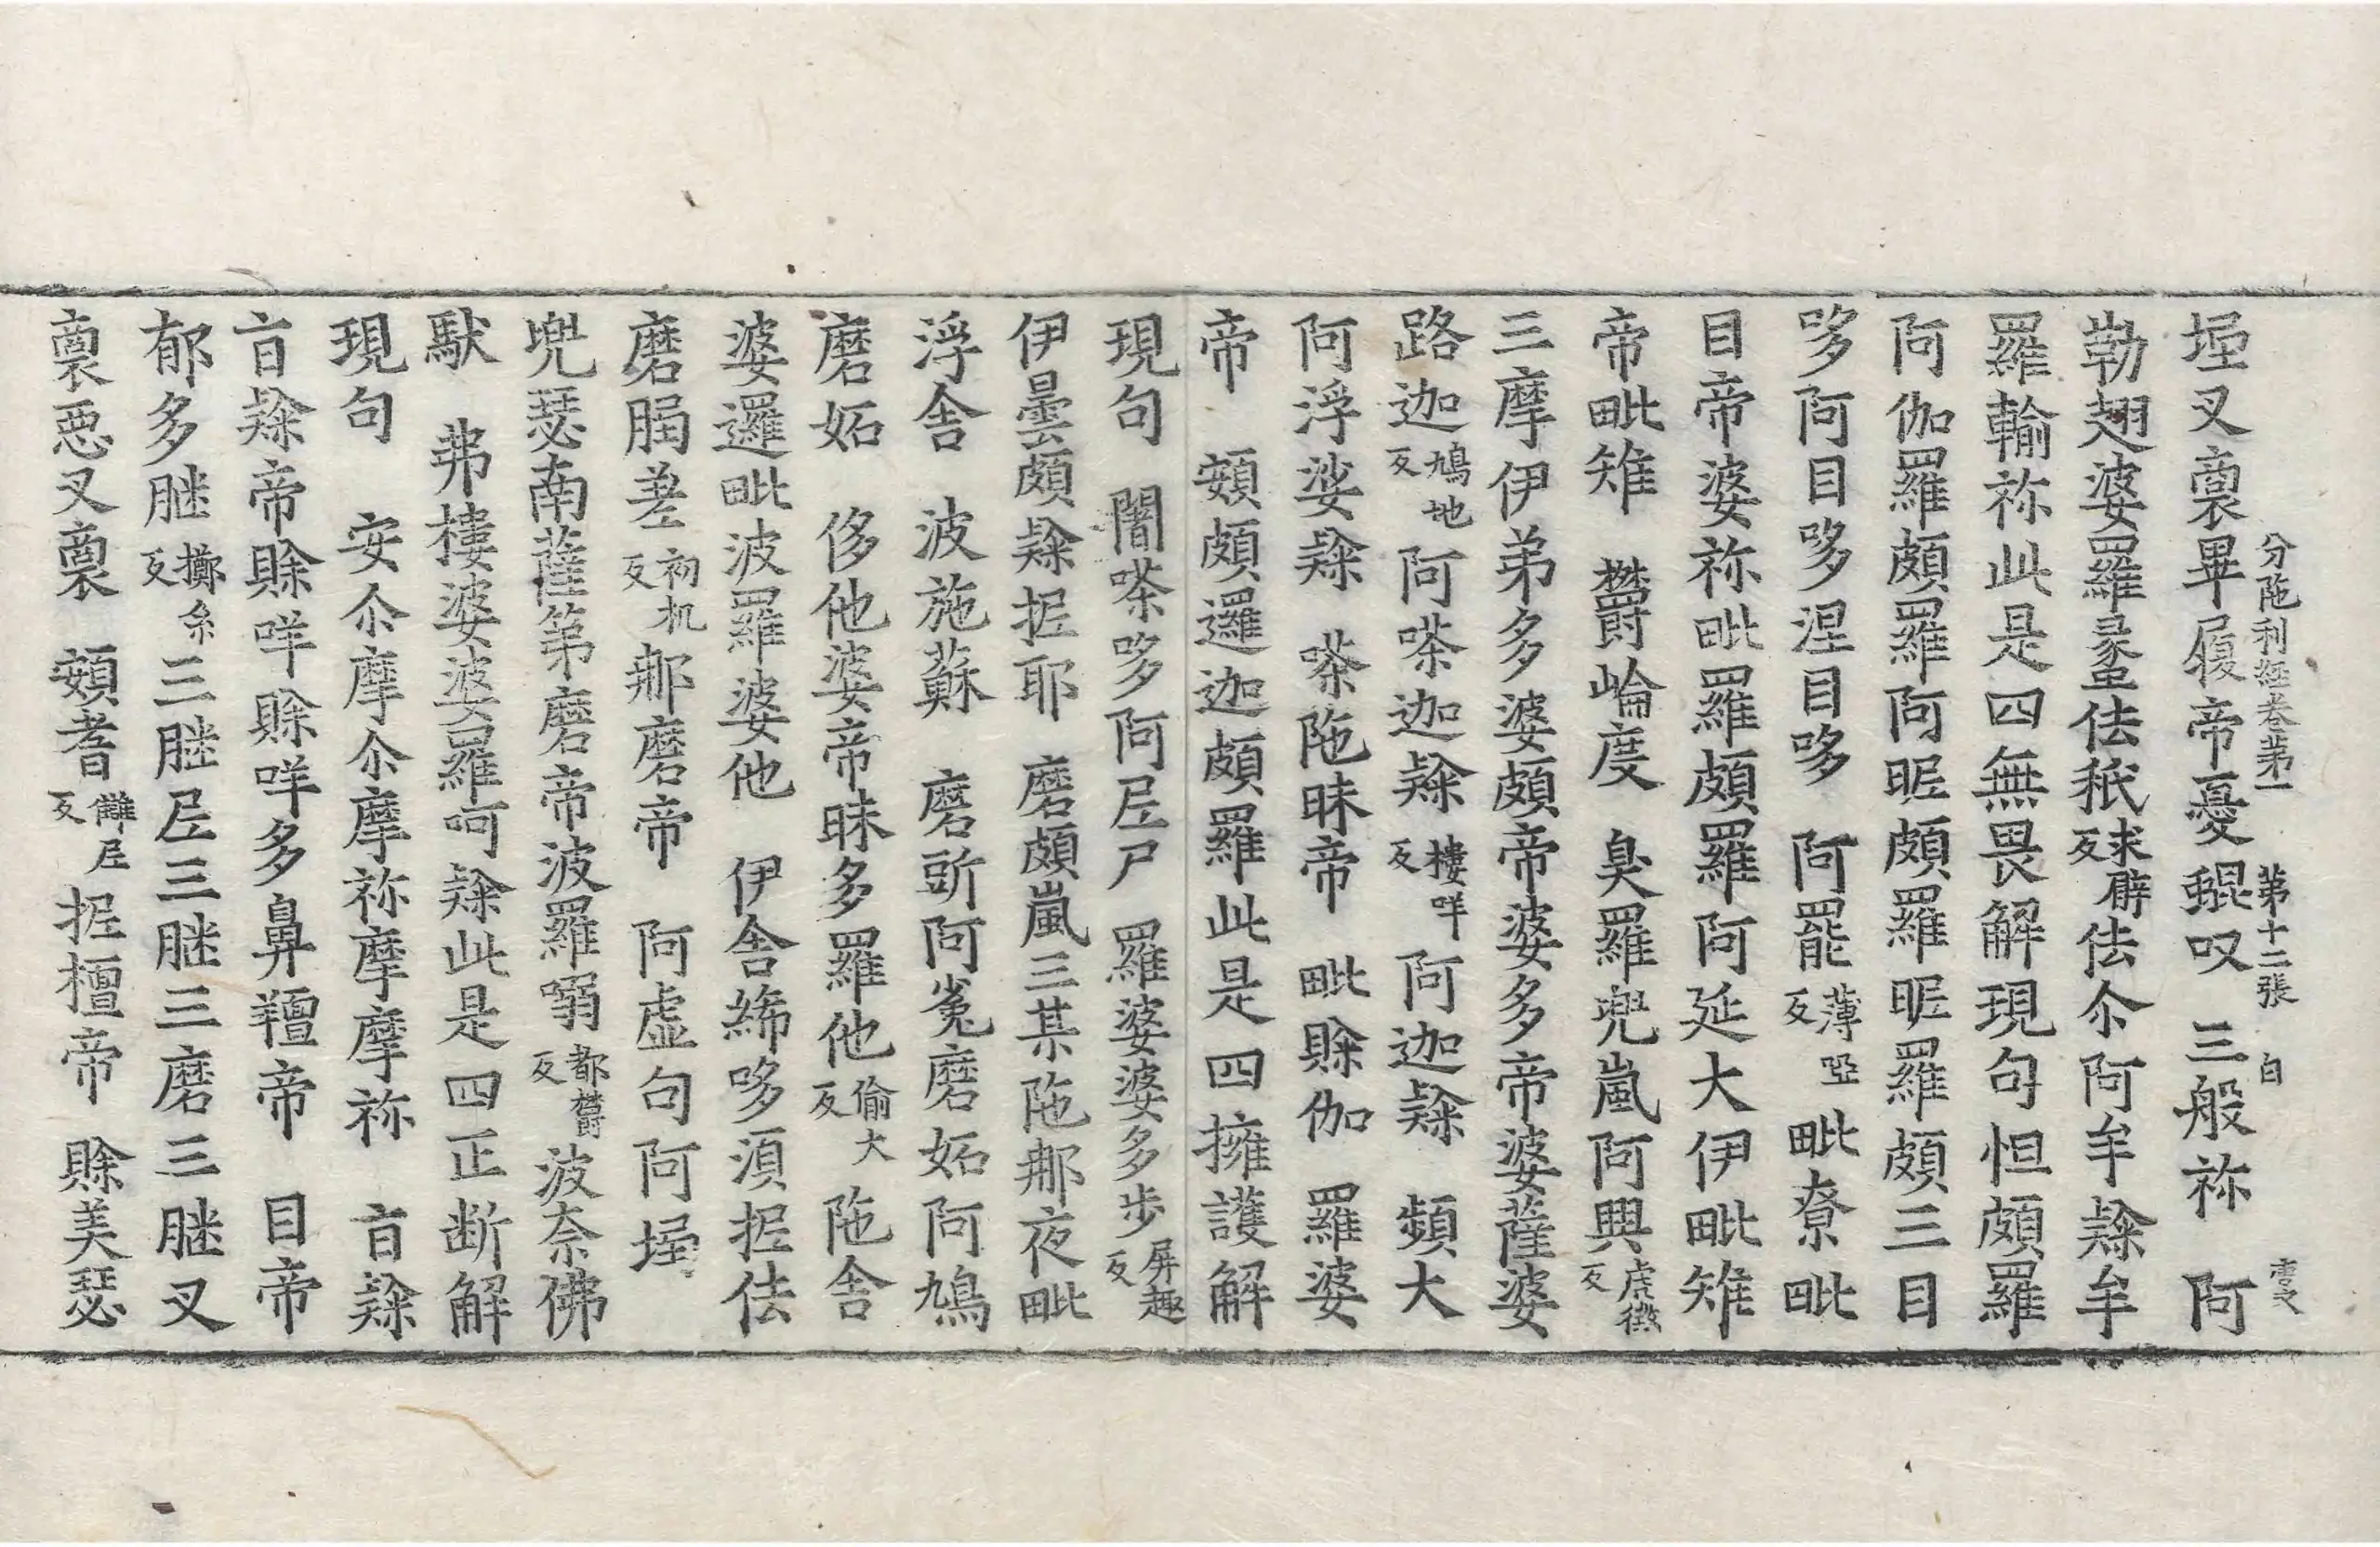 分陁利經卷第一 第十二張 白
堙叉禀畢履帝憂蜫叹 三般祢 阿
勃翅婆羅㝹佉秖求癖反佉尒阿牟㖨牟
羅輸祢此是四無畏解現句怛頗羅
阿伽羅頗羅阿昵頗羅昵羅頗三目
哆阿目哆涅目哆 阿罷薄啞反毗尞毗
目帝婆祢毗羅頗羅阿延大伊毗雉
帝毗雉 欝崘度 臭羅兜嵐阿興虎徵反
三摩伊弟多婆頗帝婆多帝婆薩婆
路迦鳩地反阿嗏迦㖨樓咩反阿迦㖨 頻大
阿浮娑㖨 嗏陁昧帝 毗賖伽 羅婆
帝 頞頗邏迦頗羅此是四擁護解
現句 闍嗏哆阿𡰱尸 羅婆婆多步屏趣反
伊曇頗㖨抳耶 磨頗嵐三某陁那夜毗
浮舍 波施蘇 磨跅阿㝹磨妬阿鳩
磨妬 侈他婆帝昧多羅他偷大反陁舍
婆邏毗波羅婆他 伊舍締哆湏抳佉
磨䏶差初机反那磨帝 阿虚句阿堙
兜瑟南薩第磨帝波羅嗍都欝反波奈佛
馱 弗樓婆婆羅呵㖨此是四正断解
現句 安尒摩尒摩祢摩摩祢 盲㖨
盲㖨帝賖咩賖咩多鼻䊲帝 目帝
郁多䏶擲糸反三䏶𡰱三䏶三磨三䏶叉
禀惡叉禀 頞耆讎𡰱反抳檀帝 賖美瑟